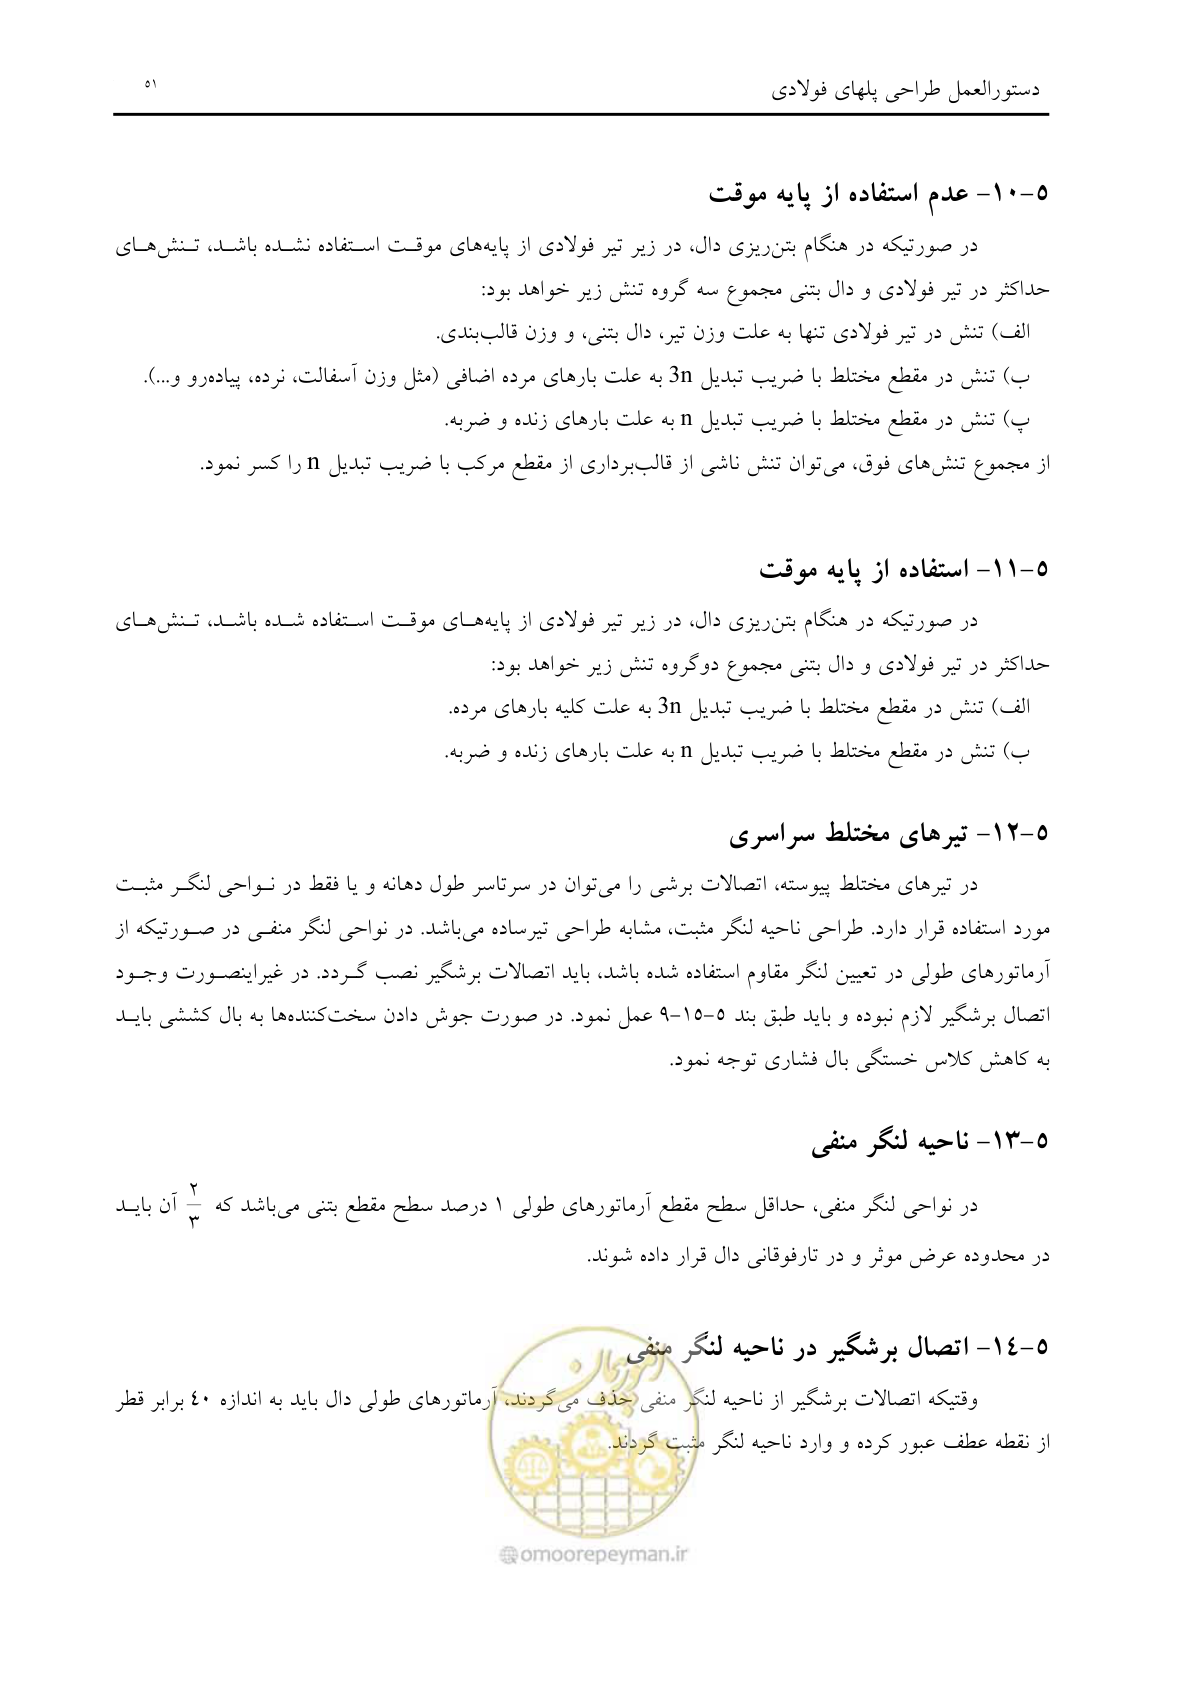 دستورالعمل طراحی پلهای فولادی
٥١
٥-١٠- عدم استفاده از پایه موقت
در صورتیکه در هنگام بتن‌ریزی دال، در زیر تیر فولادی از پایه‌های موقت استفاده نشده باشد، تنش‌های
حداکثر در تیر فولادی و دال بتنی مجموع سه گروه تنش زیر خواهد بود:
الف) تنش در تیر فولادی تنها به علت وزن تیر، دال بتنی، و وزن قالب‌بندی.
ب) تنش در مقطع مختلط با ضریب تبدیل 3n به علت بارهای مرده اضافی (مثل وزن آسفالت، نرده، پیاده‌رو و...).
پ) تنش در مقطع مختلط با ضریب تبدیل n به علت بارهای زنده و ضربه.
از مجموع تنش‌های فوق، می‌توان تنش ناشی از قالب‌برداری از مقطع مرکب با ضریب تبدیل n را کسر نمود.
٥-١١- استفاده از پایه موقت
در صورتیکه در هنگام بتن‌ریزی دال، در زیر تیر فولادی از پایه‌های موقت استفاده شده باشد، تنش‌های
حداکثر در تیر فولادی و دال بتنی مجموع دوگروه تنش زیر خواهد بود:
الف) تنش در مقطع مختلط با ضریب تبدیل 3n به علت کلیه بارهای مرده.
ب) تنش در مقطع مختلط با ضریب تبدیل n به علت بارهای زنده و ضربه.
٥-١٢- تیرهای مختلط سراسری
در تیرهای مختلط پیوسته، اتصالات برشی را می‌توان در سرتاسر طول دهانه و یا فقط در نواحی لنگر مثبت
مورد استفاده قرار دارد. طراحی ناحیه لنگر مثبت، مشابه طراحی تیرساده می‌باشد. در نواحی لنگر منفی در صورتیکه از
آرماتورهای طولی در تعیین لنگر مقاوم استفاده شده باشد، باید اتصالات برشگیر نصب گردد. در غیراینصورت وجود
اتصال برشگیر لازم نبوده و باید طبق بند ٥-١٥-٩ عمل نمود. در صورت جوش دادن سخت‌کننده‌ها به بال کششی باید
به کاهش کلاس خستگی بال فشاری توجه نمود.
٥-١٣- ناحیه لنگر منفی
در نواحی لنگر منفی، حداقل سطح مقطع آرماتورهای طولی ١ درصد سطح مقطع بتنی می‌باشد که ٢/٣ آن باید
در محدوده عرض موثر و در تارفوقانی دال قرار داده شوند.
٥-١٤- اتصال برشگیر در ناحیه لنگر منفی
وقتیکه اتصالات برشگیر از ناحیه لنگر منفی حذف می‌گردند، آرماتورهای طولی دال باید به اندازه ٤٠ برابر قطر
از نقطه عطف عبور کرده و وارد ناحیه لنگر مثبت گردند.
امور پیمان
@omoorepeyman.ir